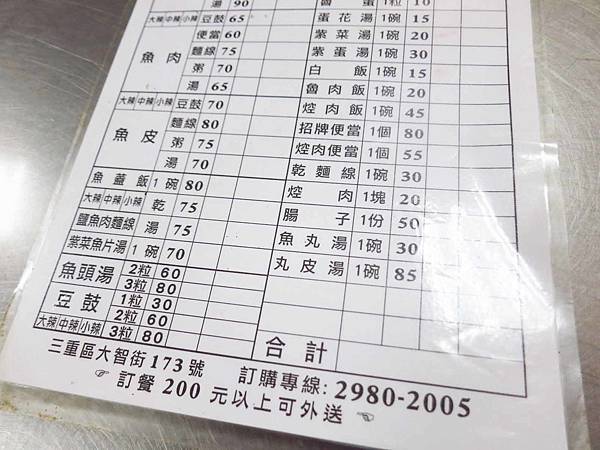 湯 90
大辣 中辣 小辣 豆鼓 65
便當 60
魚肉 麵線 75
粥 70
湯 65
大辣 中辣 小辣 豆鼓 70
魚皮 麵線 80
粥 75
湯 70
魚蓋飯 1碗 80
大辣 中辣 小辣 乾 75
鹽魚肉麵線 湯 75
紫菜魚片湯 1碗 70
魚頭湯 2粒 60
3粒 80
豆鼓 1粒 30
2粒 60
大辣 中辣 小辣 3粒 80
蛋 1粒 10
蛋花湯 1碗 15
紫菜湯 1碗 20
紫蛋湯 1碗 30
白飯 1碗 15
魯肉飯 1碗 20
焢肉飯 1碗 45
招牌便當 1個 80
焢肉便當 1個 55
乾麵線 1碗 30
焢肉 1塊 20
腸子 1份 50
魚丸湯 1碗 30
丸皮湯 1碗 85
合計
三重區大智街173號 訂購專線:2980-2005
☞ 訂餐 200 元以上可外送 ☜